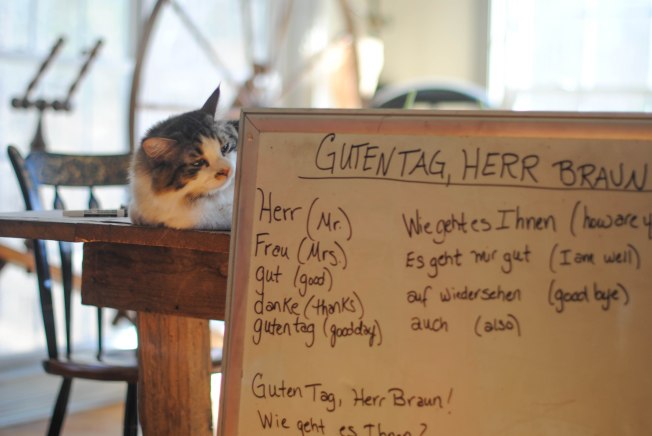 GUTEN TAG, HERR BRAUN
Herr (Mr.)
Frau (Mrs.)
gut (good)
danke (thanks)
guten tag (goodday)
Wie geht es Ihnen (how are y
Es geht mir gut (I am well)
auf wiedersehen (good bye)
auch (also)
Guten Tag, Herr Braun!
Wie geht es Ihnen?